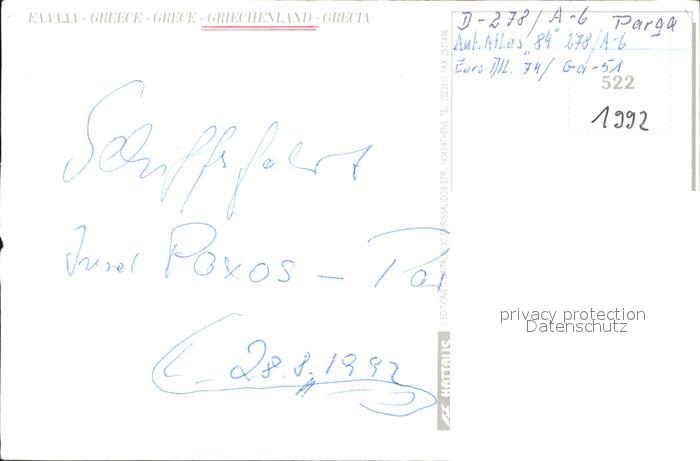 ΕΛΛΑΔΑ - GREECE - GRECE - GRIECHENLAND - GRECIA
D-278/A-6 Parga
Aut. Atlas "84" 278/A-6
74/ Ga-51
522
1992
Schiffsfahrt
Insel Paxos - Par
28.8.1992
HAITALIS
privacy protection
Datenschutz